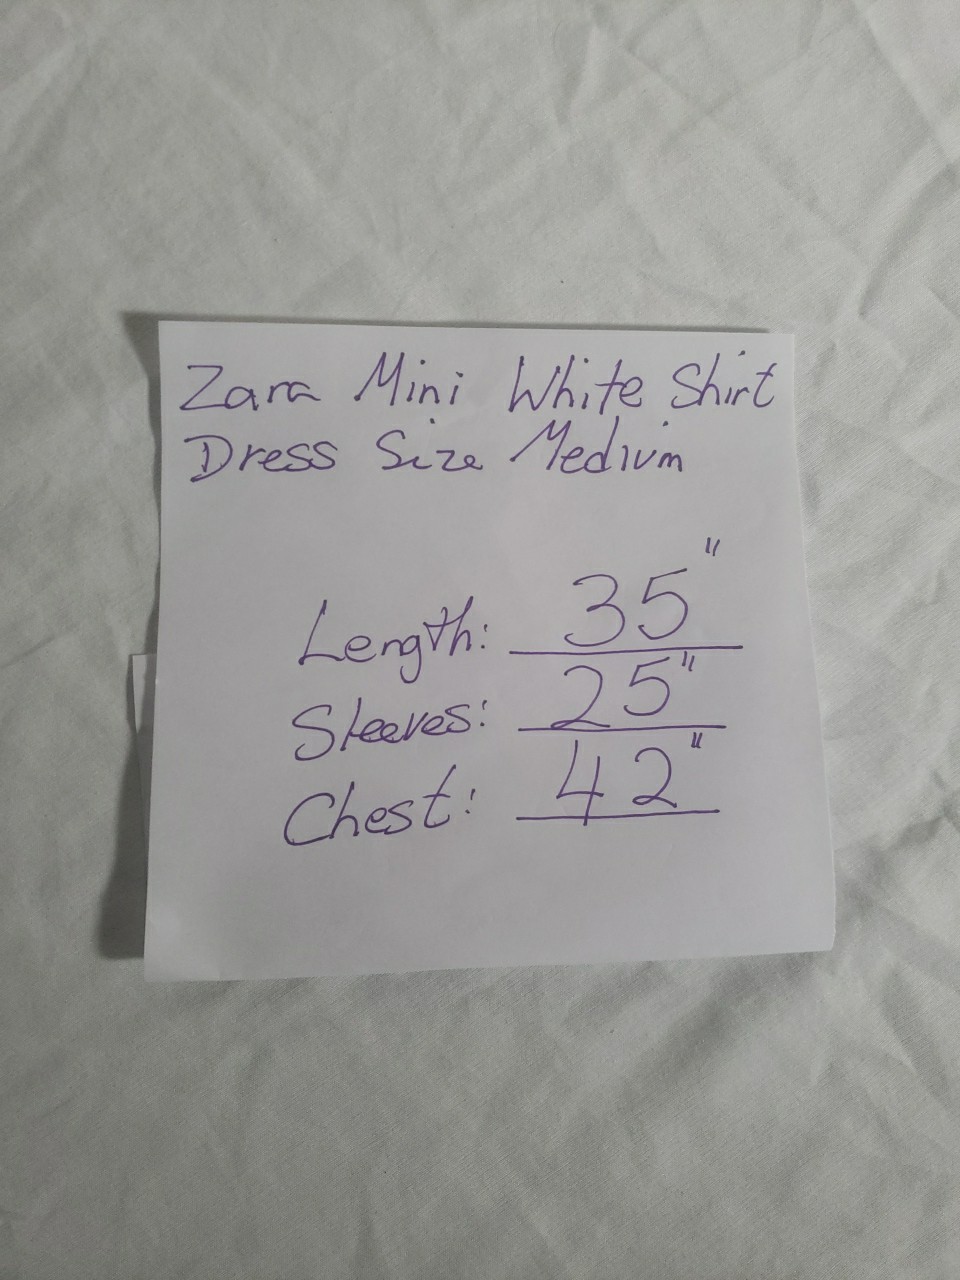 Zara Mini White Shirt
Dress Size Medium
Length: 35"
Sleeves: 25"
Chest: 42"